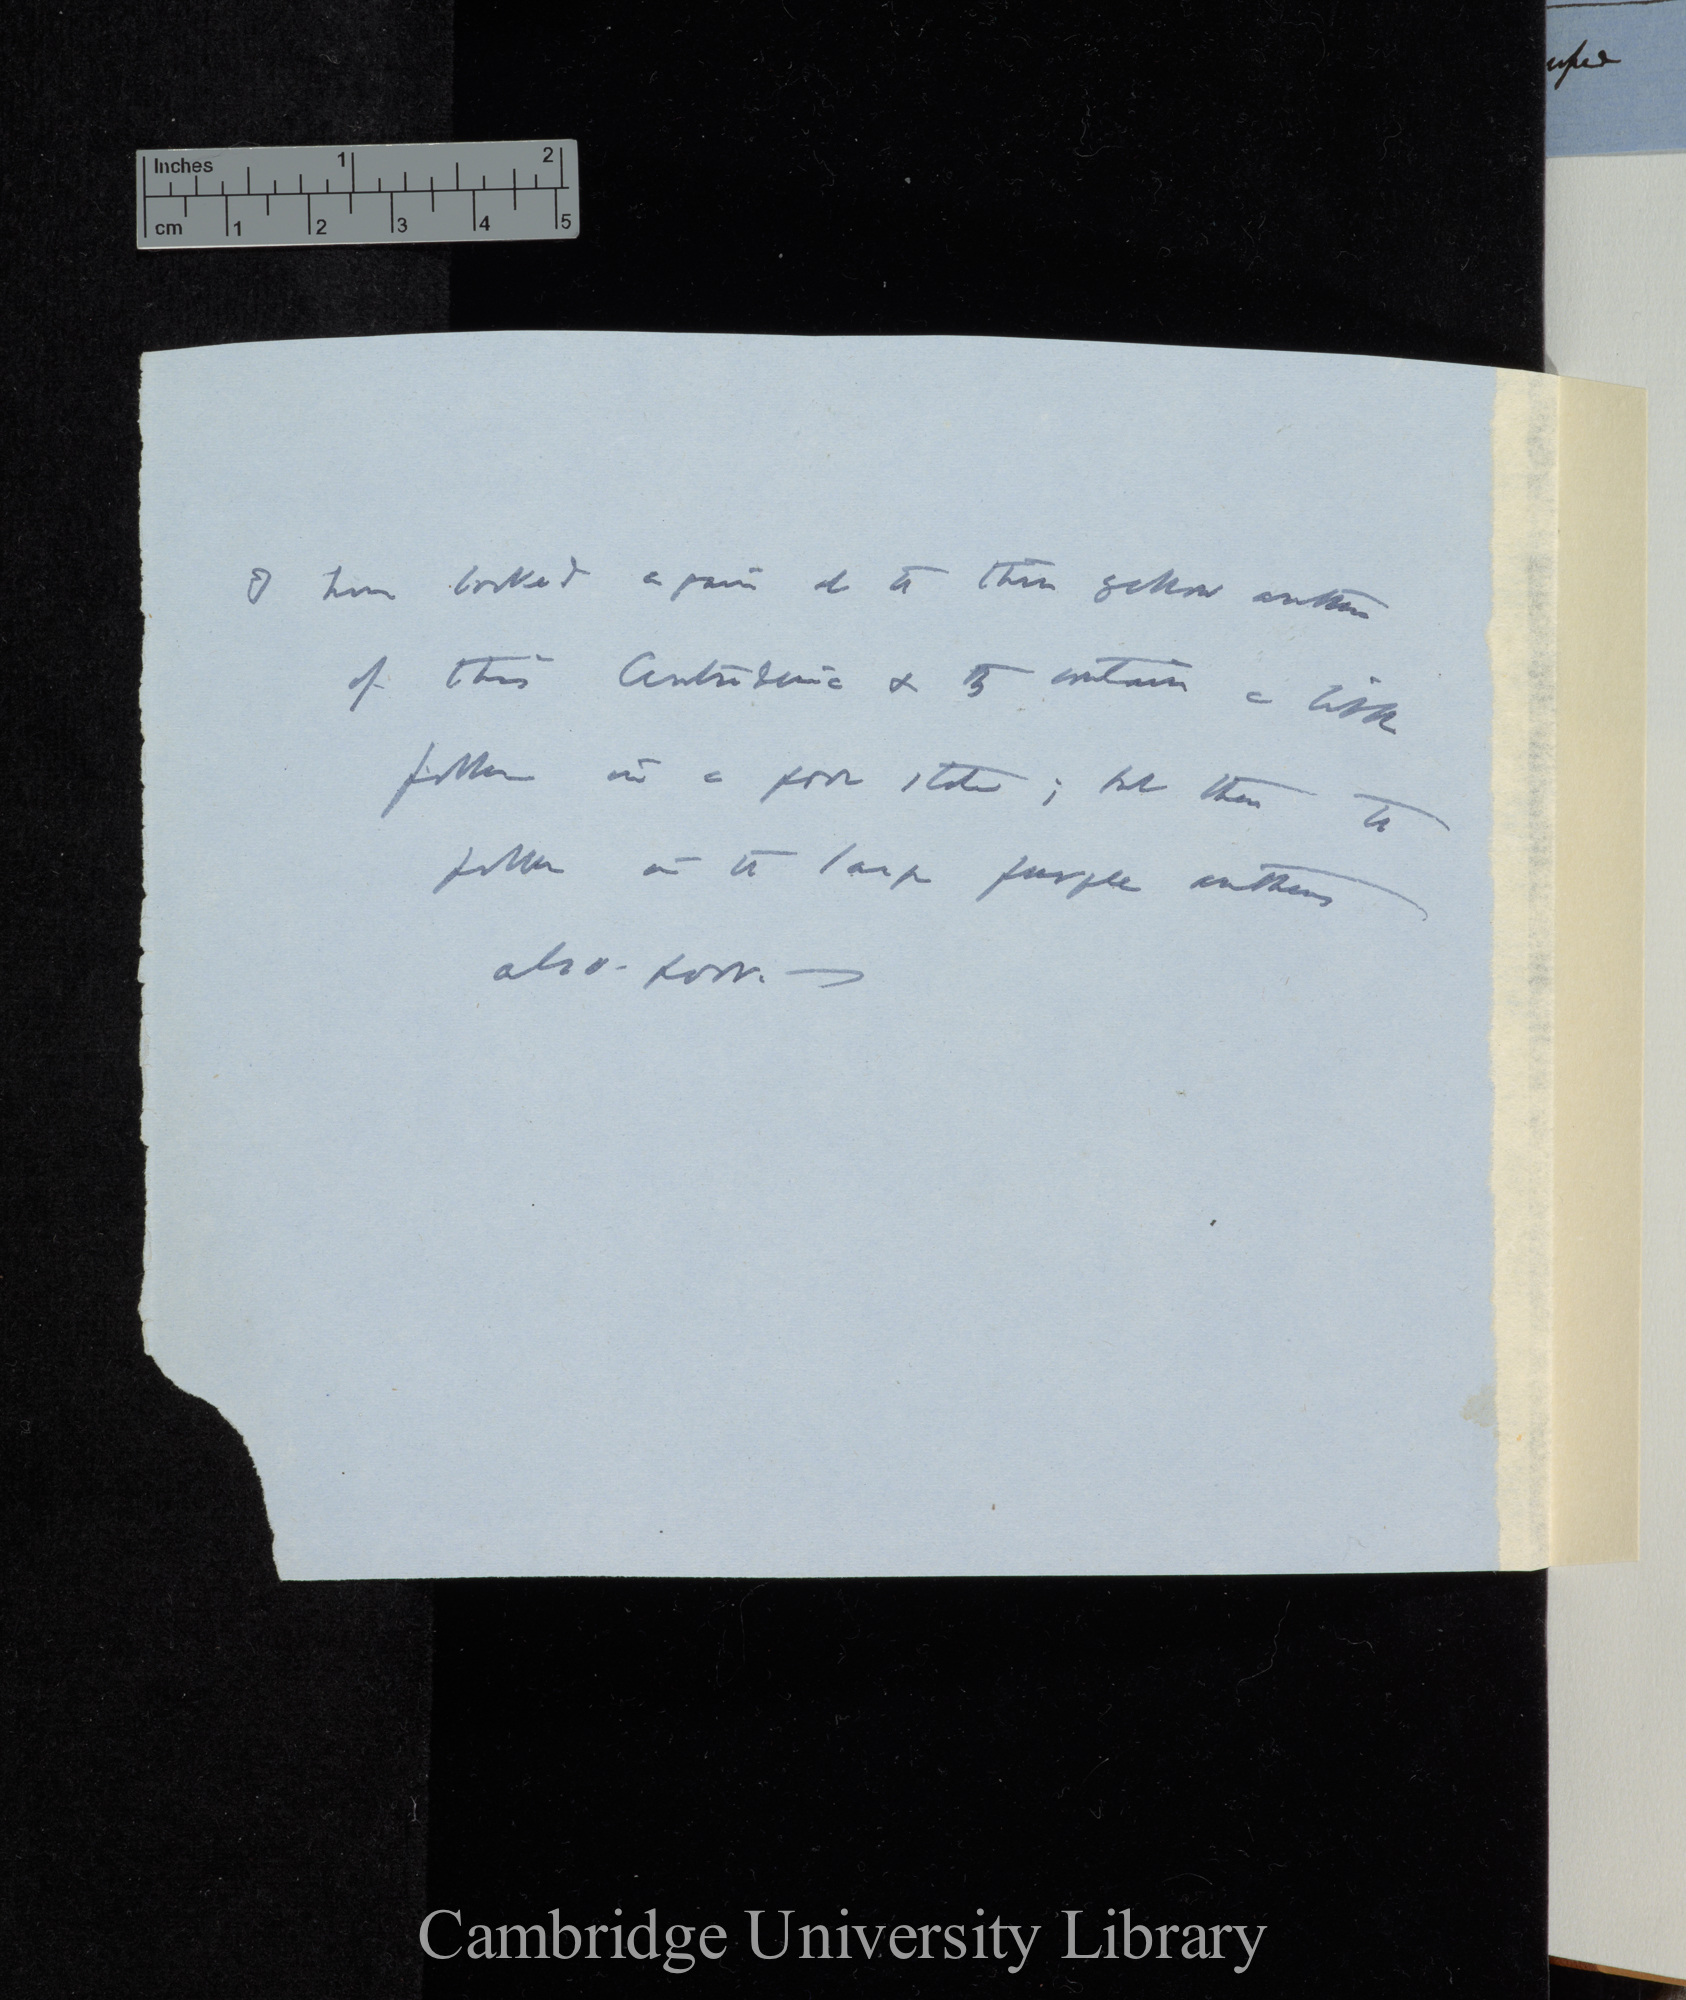 uped
Inches 1 2
cm 1 2 3 4 5
I have looked again at the thin yellow anthers
of this Centradenia & they contain a little
pollen in a poor state; but then the
pollen in the large purple anthers
also poor.—
Cambridge University Library